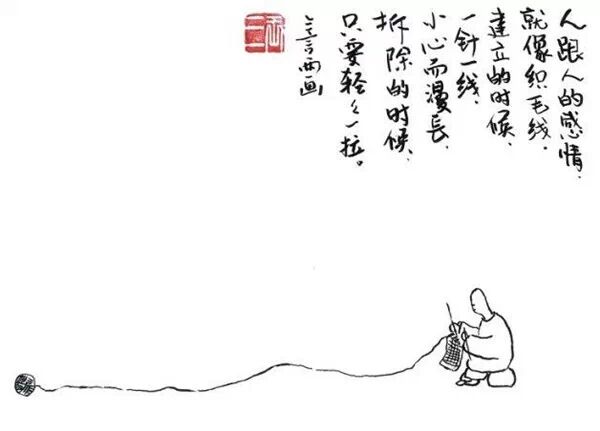 人跟人的感情，
就像织毛线，
建立的时候，
一针一线，
小心而漫長，
拆除的时候，
只要轻々一拉。